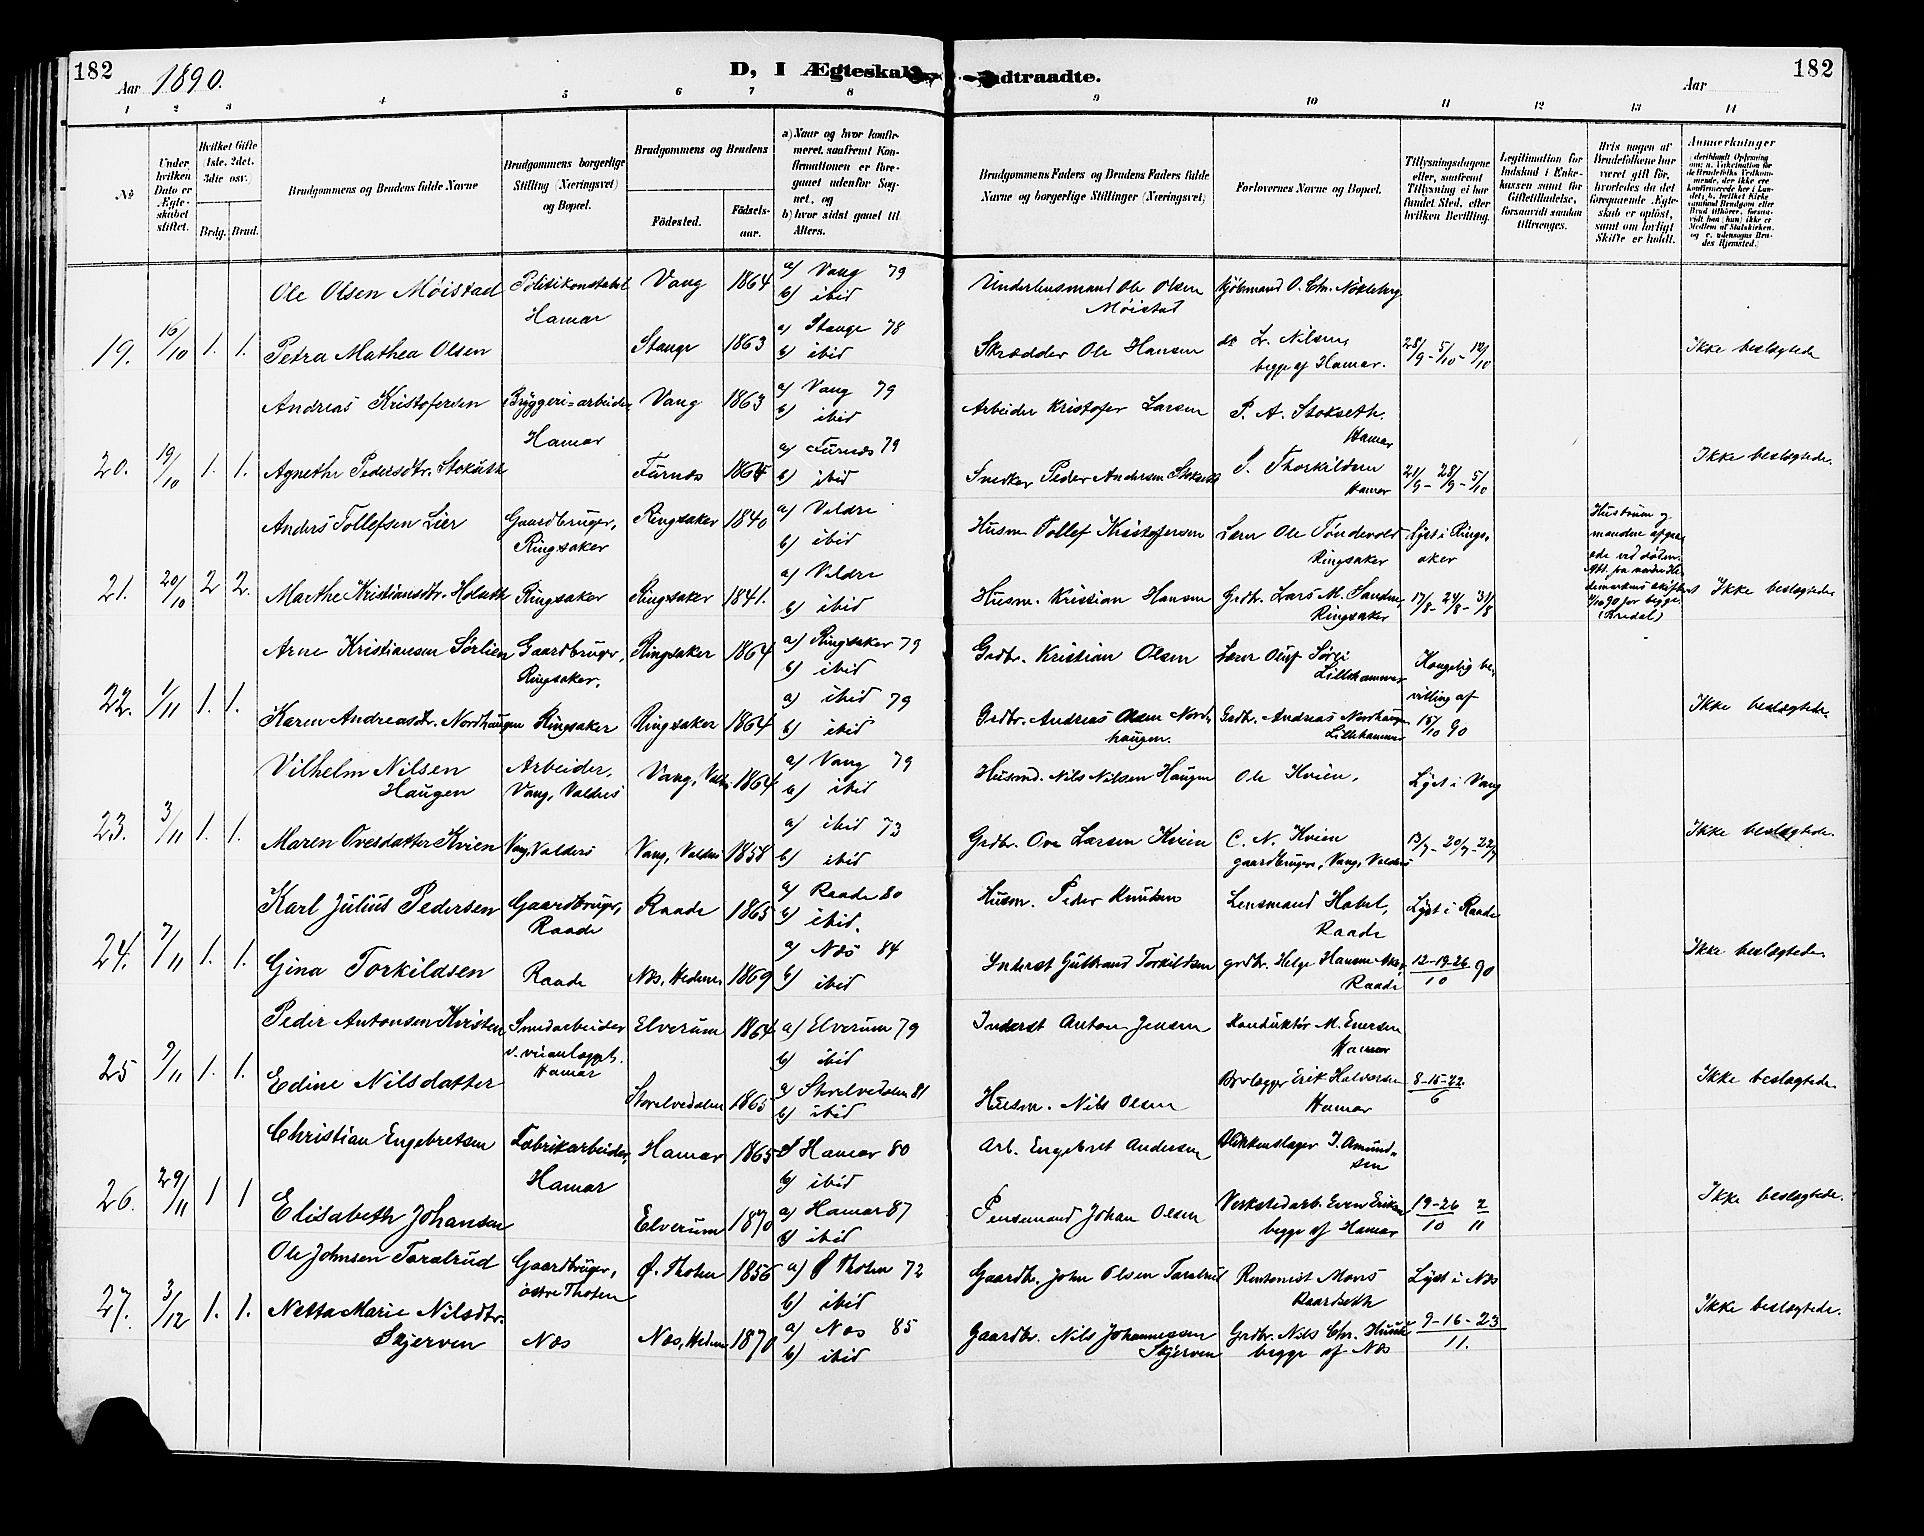 182
Aar 1890.
D, I Ægteskab Indtraadte.
Aar
182
1 2 3 4 5 6 7 8 9 10 11 12 13 14
No
Under hvilken Dato er Ægteskabet stiftet.
Hvilket Gifte 1ste, 2det, 3die osv.
Brdg. Brud.
Brudgommens og Brudens fulde Navne
Brudgommens borgerlige Stilling (Næringsvei) og Bopæl.
Brudgommens og Brudens
Fødested.
Fødselsaar.
a) Naar og hvor konfirmeret, saafremt Konfirmationen er foregaaet udenfor Sognet, og
b) hvor sidst gaaet til Alters.
Brudgommens Faders og Brudens Faders fulde Navne og borgerlige Stillinger (Næringsvei)
Forlovernes Navne og Bopæl.
Tillysningsdagene eller, saafremt Tillysning ei har fundet Sted, efter hvilken Bevilling.
Legitimation for Indskud i Enkekassen samt for Giftetilladelse, forsaavidt saadan tiltrænges.
Hvis nogen af Brudefolkene har været gift før, hvorledes da det foregaaende Ægteskab er opløst, samt om lovligt Skifte er holdt.
Anmerkninger
Ole Olsen Møistad Politikonstabel Vang 1864 a) Vang 79 Underlensmand Ole Olsen Kjøbmand O. Chr. Nökleberg
Hamar b) ibid Møistad
19. 16/10 1. 1. Petra Mathea Olsen Stange 1863 a) Stange 78 Skrædder Ole Hansen do L. Nilsen, 28/9 - 5/10 - 12/10 Ikke beslægtede
b) ibid begge af Hamar.
Andreas Kristofersen Bryggeri=arbeider Vang 1863 a) Vang 79 Arbeider Kristofer Larsen P. A. Stokseth.
Hamar b) ibid Hamar
20. 19/10 1. 1. Agnethe Pedersdtr. Stokseth Furnes 1864 a) Furnes 79 Snedker Peder Andersen Stokseth P. Thorkildsen 21/9 - 28/9 - 5/10 Ikke beslægtede.
b) ibid Hamar
Anders Tollefsen Lier Gaardbruger, Ringsaker 1840 a) Veldre Husm. Tollef Kristofersen Lærer Ole Tøndevold Lyst i Ringsaker Hustruen og manden afgaaede ved døden.
Ringsaker b) ibid Ringsaker
21. 20/10 2 2. Marthe Kristiansdtr. Holseth Ringsaker Ringsaker 1841. a) Veldre Husm. Kristian Hansen Grdbr. Lars M. Sanden, 17/8 - 24/8 - 31/8 Ikke beslægtede
b) ibid Ringsaker
Arne Kristiansen Sørlien Gaardbruger, Ringsaker 1864 a) Ringsaker 79 Grdbr. Kristian Olsen Lærer Oluf Sørli Kongelig bevilling af 15/10 90
Ringsaker. b) ibid Lillehammer
22. 1/11 1. 1. Karen Andreasdtr. Nordhaugen Ringsaker Ringsaker 1864 a) ibid 79 Grdbr. Andreas Olsen Nordhaugen. Grdbr. Andreas Nordhaugen Ikke beslægtede.
b) ibid Lillehammer
Vilhelm Nilsen Arbeider, Vang, Valdres 1864 a) Vang 79 Husmd. Nils Nilsen Haugen Ole Kvien, Lyst i Vang
Haugen Vang, Valdres a) ibid
23. 3/11 1. 1. Maren Ovesdatter Kvien Vang, Valders Vang, Valdres 1858 a) ibid 73 Grdbr. Ove Larsen Kvien C. N. Kvien 13/7 - 20/7 - 22/7 Ikke beslægtede.
b) ibid gaardbrugere, Vang, Valdres
Karl Julius Pedersen Gaardbruger, Raade 1865 a) Raade 80 Husm. Peder Knutsen Lensmand Habel, Lyst i Raade
Raade b) ibid. Raade
24. 7/11 1. 1. Gina Torkildsen Raade Næs, Hedem. 1869 a) Næs 84 Inderst Gulbrand Torkildsen grdbr. Helge Hansen Aker 12-19-26/10 90 Ikke beslægtede.
b) ibid Raade
Peder Antonsen Kvisten Smedarbeider Elverum 1864 a) Elverum 79 Inderst Anton Jensen Konduktør M. Evensen
Hamar b) ibid Hamar
25 9/11 1. 1. Edine Nilsdatter Storelvedalen 1865 a) Storelvedalen 81 Husm. Nils Olsen Erik Halvorsen 8-15-22/6 Ikke beslægtede.
b) ibid Hamar
Christian Engebretsen Fabrikarbeider, Hamar 1865 a) Hamar 80 Arb. Engebret Andersen Blikkenslager J. Amundsen
Hamar b) ibid
26. 29/11 1 1 Elisabeth Johansen Elverum 1870 a) Hamar 87 Johan Olsen Verkstedarb. Even Eriksen 19-26/10 2/11 Ikke beslægtede.
b) ibid begge af Hamar
Ole Johnsen Taralrud Gaardbruger, Ø. Thoten 1856 a) Ø Thoten 72 Gaardbr. John Olsen Taralrud Rentenist Mons Kaardseth Lyst i Næs
østre Thoten b) ibid
27. 3/12 1. 1. Netta Marie Nilsdtr. Skjerven Næs Næs, Hedem 1870 a) Næs 85 Gaardbr. Nils Johannessen Skjerven Grdbr. Nils Chr. Huuse 9-16-23/11. Ikke beslægtede.
b) ibid begge af Næs